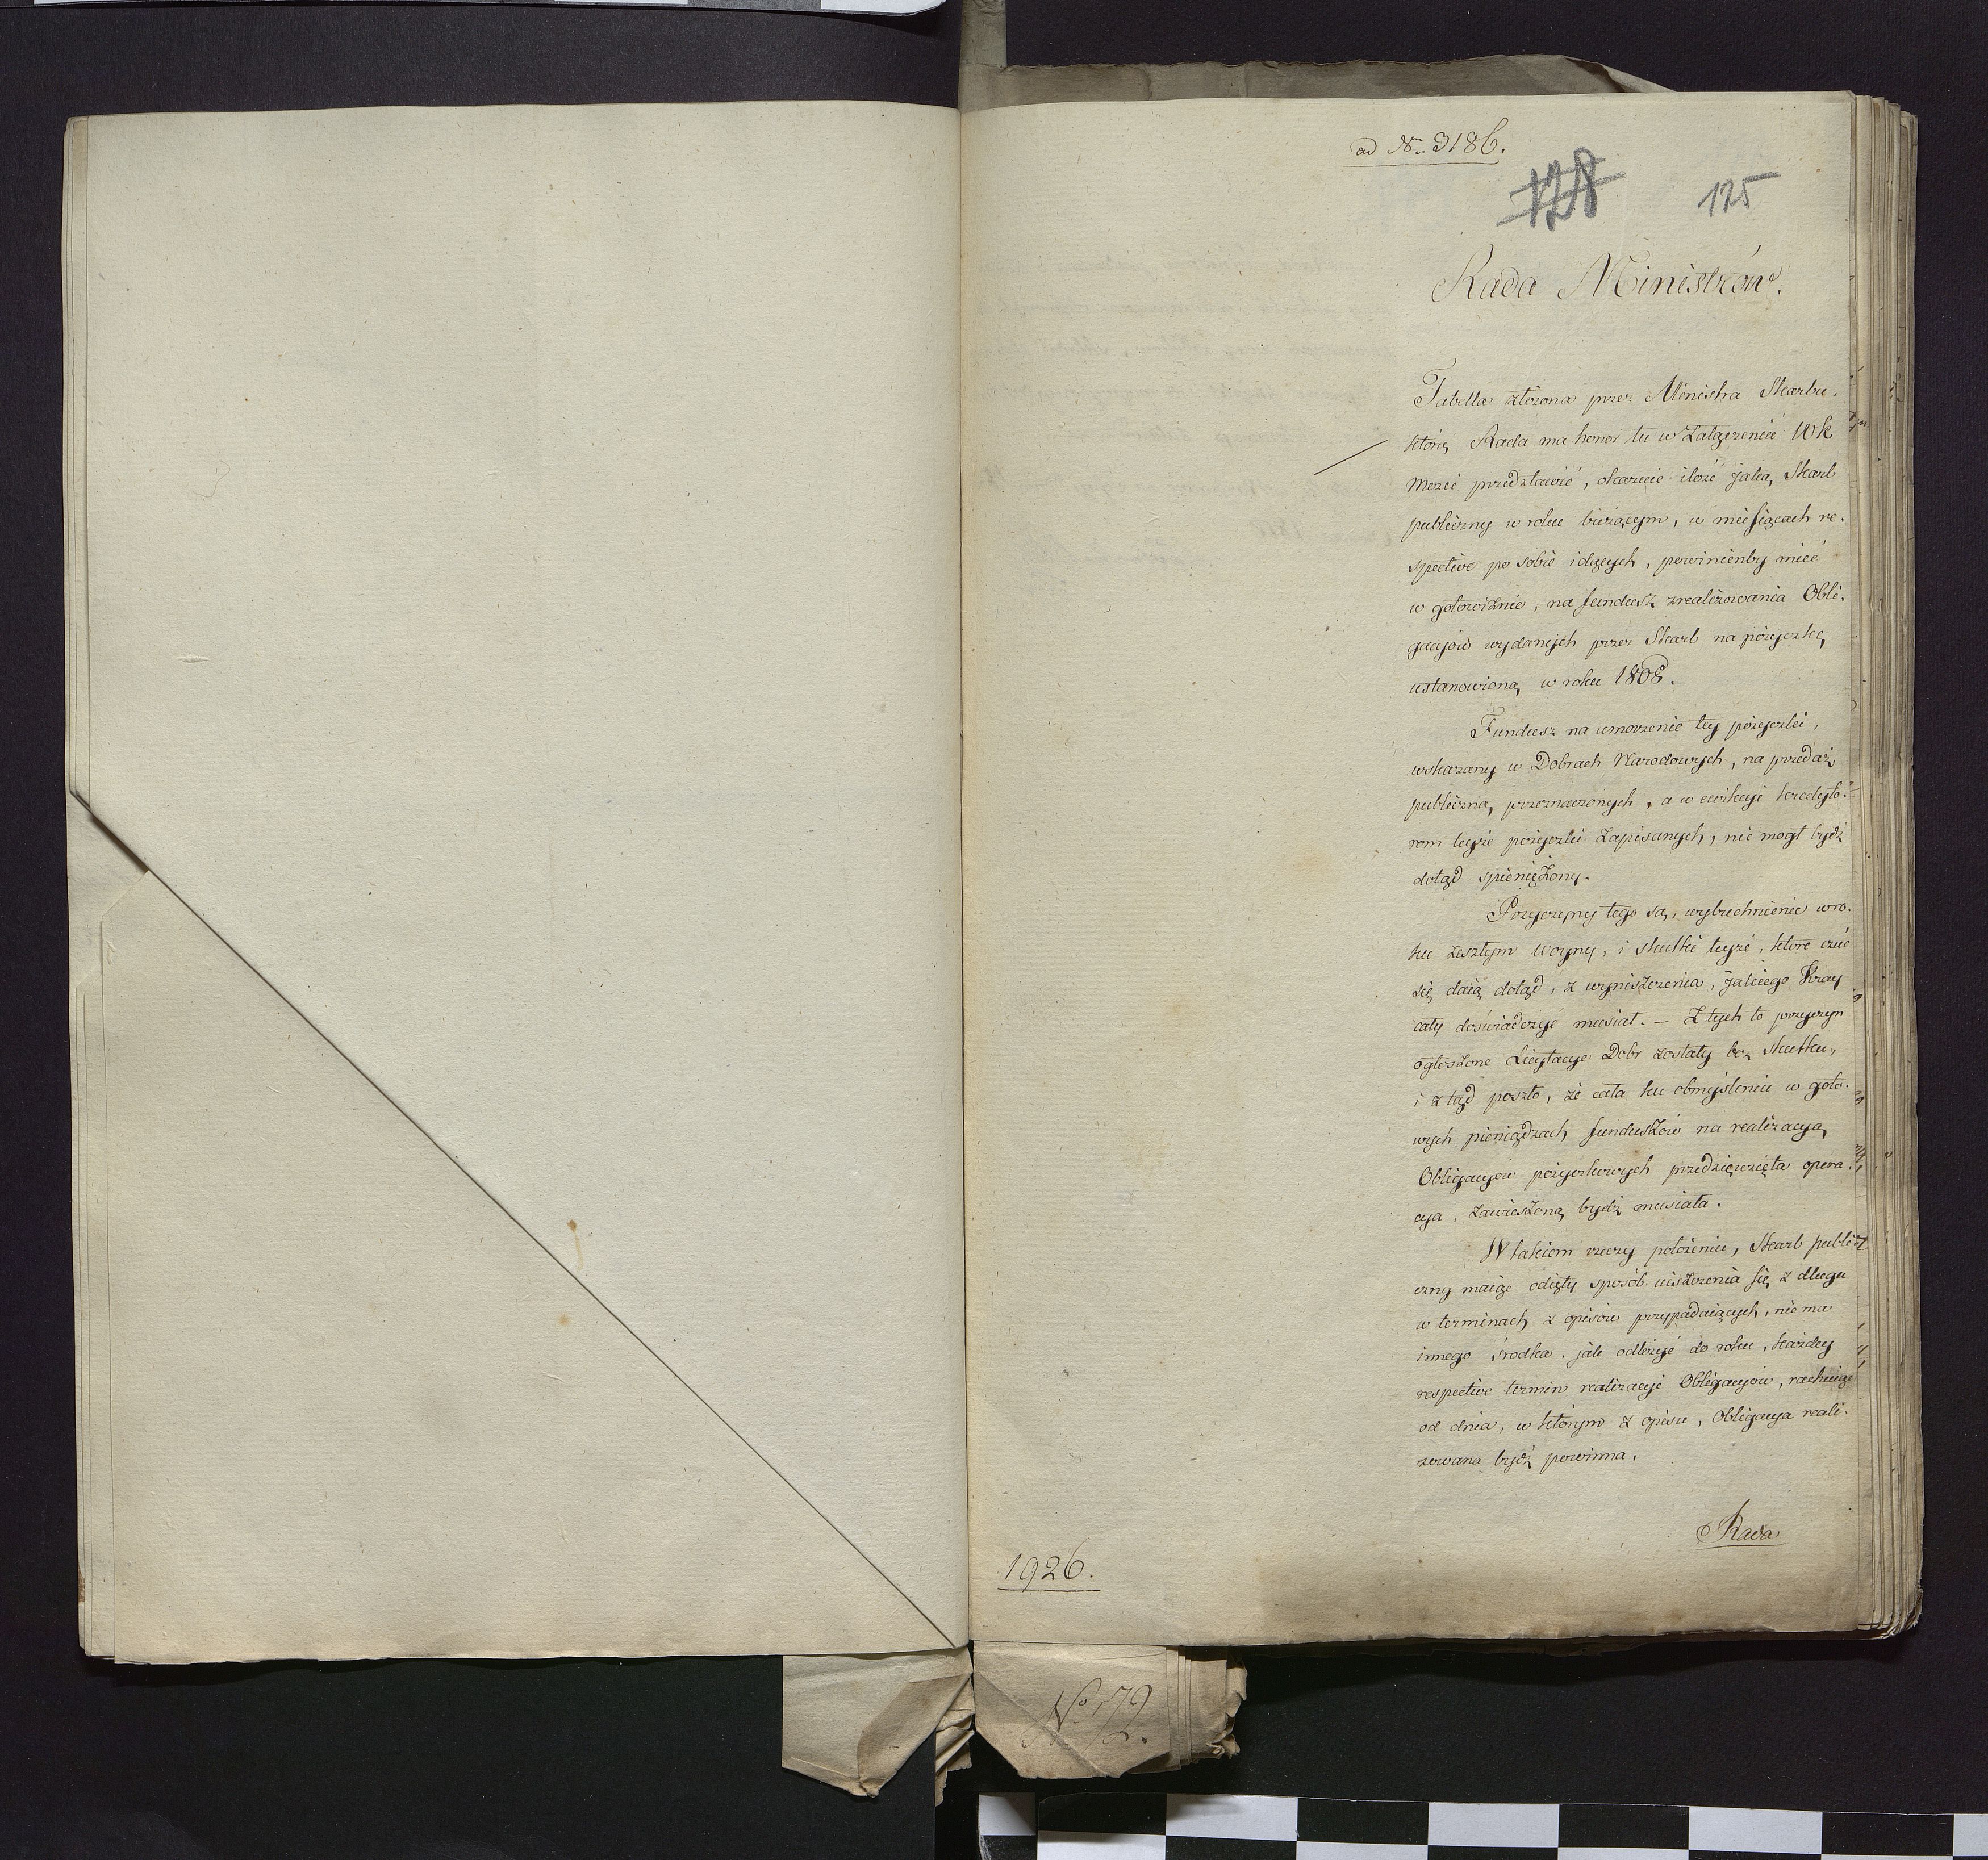 ad N. 3186.
128
125
Rada Ministrów.
Tabella złożona przez Ministra Skarbu.
którą Rada ma honor tu w Załączeniu WK
Mości przedstawić, okazuie ilość jaką Skarb
publiczny w roku bieżącym, w miesiącach re-
spective po sobie idących, powinienby mieć
w gotowiźnie, na fundusz zrealizowania Obli-
gacyów wydanych przez Skarb na pożyczkę
ustanowioną w roku 1808.
Fundusz na umorzenie tey pożyczki,
wskazany w Dobrach Narodowych, na przedaż
publiczną przeznaczonych, a w ewikcyi kredyto-
rom teyże pożyczki zapisanych, nie mogł bydź
dotąd spieniężony.
Przyczyny tego są, wybuchnienie w ro-
ku zeszłym woyny, i skutki teyże, ktore czuć
się daią dotąd, z wyniszczenia, jakiego Kray
cały doświadczyć musiał. – Z tych to przyczyn
ogłoszone Licytacye Dobr zostały bez skutku,
i z tąd poszło, że cała ku obmyśleniu w goto-
wych pieniądzach funduszów na realizacyą
Obligacyów pożyczkowych przedsięwzięta opera-
cya, zawieszoną bydź musiała.
W takiem rzeczy położeniu, Skarb publi-
czny maiąc odięty sposób uiszczenia się z długu
w terminach z opisów przypadaiących, nie ma
innego środka jak odłożyć do roku, każdey
respective termin realizacyi Obligacyów, rachuiąc
od dnia, w którym z opisu, Obligacya reali-
zowana bydź powinna.
Rada
1926.
No 72.